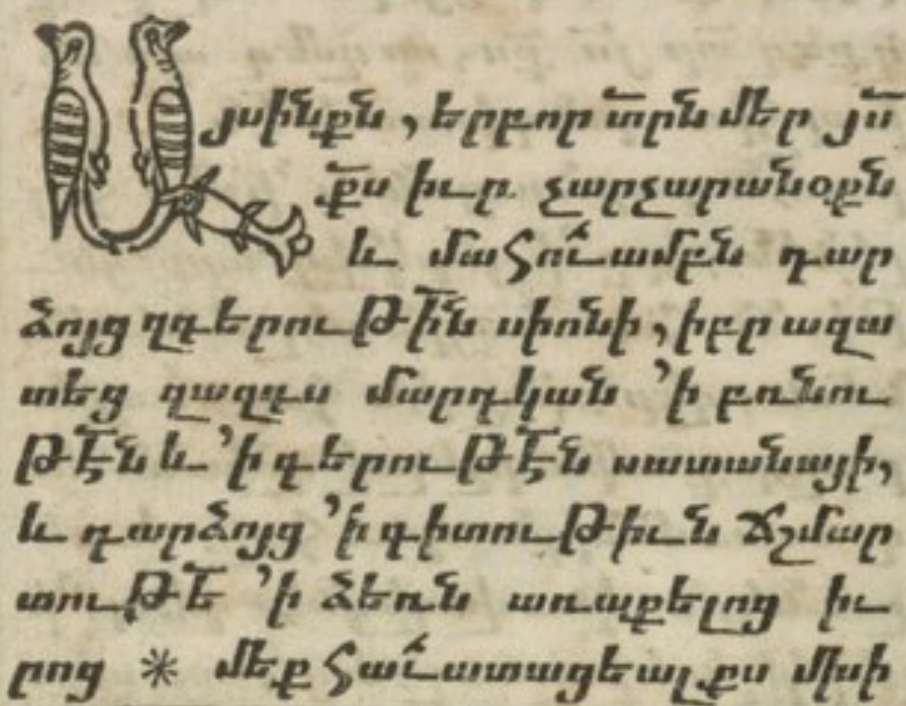 Այսինքն, երբոր տր̅ն մեր յս̅
ք̅ս իւր չարչարանօքն
և մահո՜ւամբն դար
ձոյց զգերութի̅ն սիոնի, իբր ազա
տեց զազգս մարդկան ՚ի բռնու
թե̅ն և ՚ի գերութե̅ն սատանայի,
և դարձոյց ՚ի գիտութիւն ճշմար
տութե̅ ՚ի ձեռն առաքելոց իւ
րոց * մեք հաւատացեալքս մխի